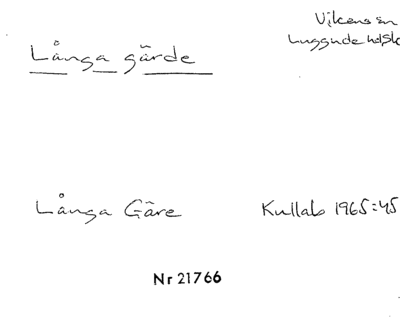 Vikens sn
Luggude hd, Sk
Långa gärde
Långa Gäre Kullab 1965:45
Nr 21766